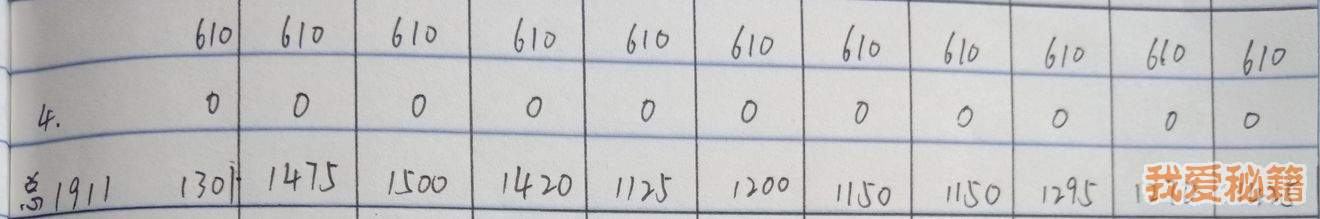 610 610 610 610 610 610 610 610 610 610 610
4. 0 0 0 0 0 0 0 0 0 0 0
总1911 1301 1475 1500 1420 1125 1200 1150 1150 1295
我爱秘籍